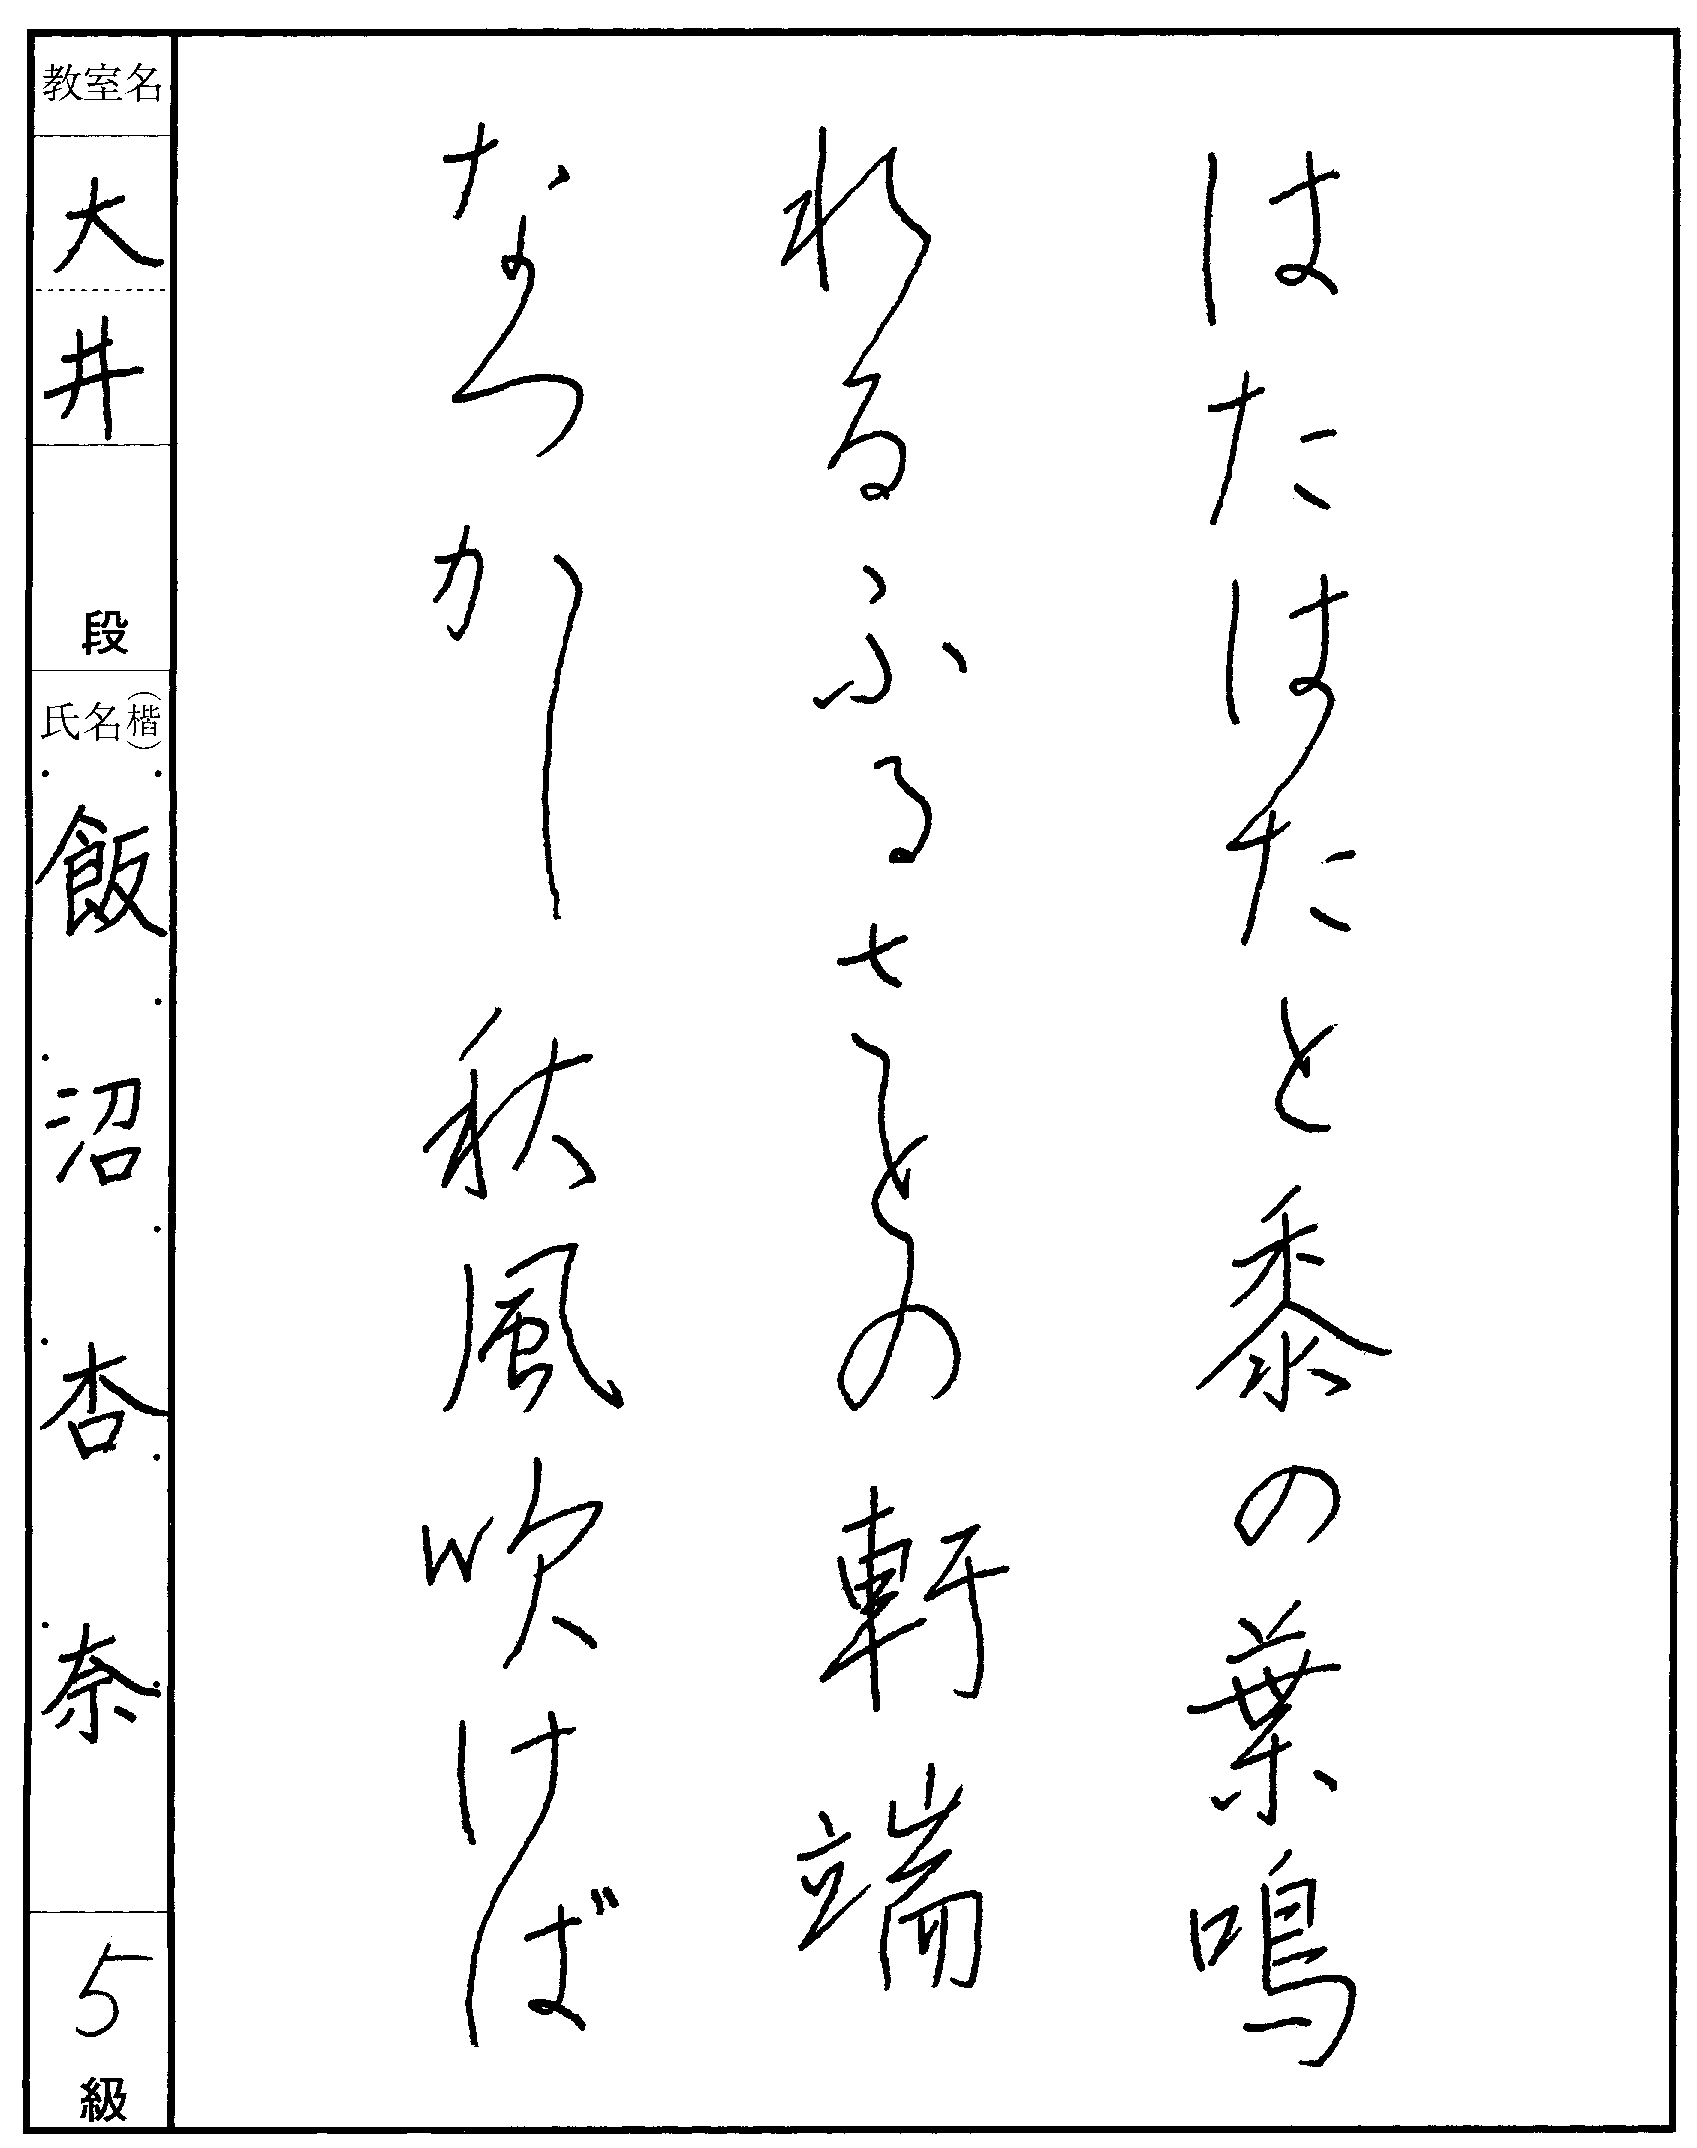 はたはたと黍の葉鳴
れるふるさとの軒端
なつかし秋風吹けば
教室名
大井
段
氏名(楷)
飯沼杏奈
5
級